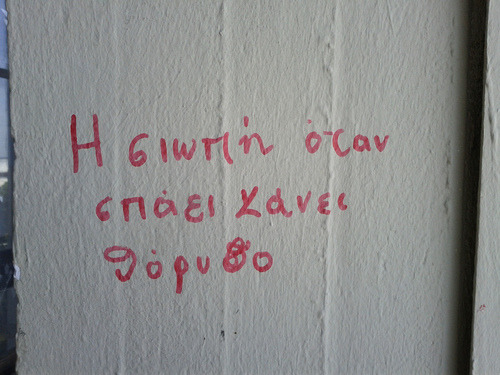 Η σιωπή όταν
σπάει κάνει
θόρυβο